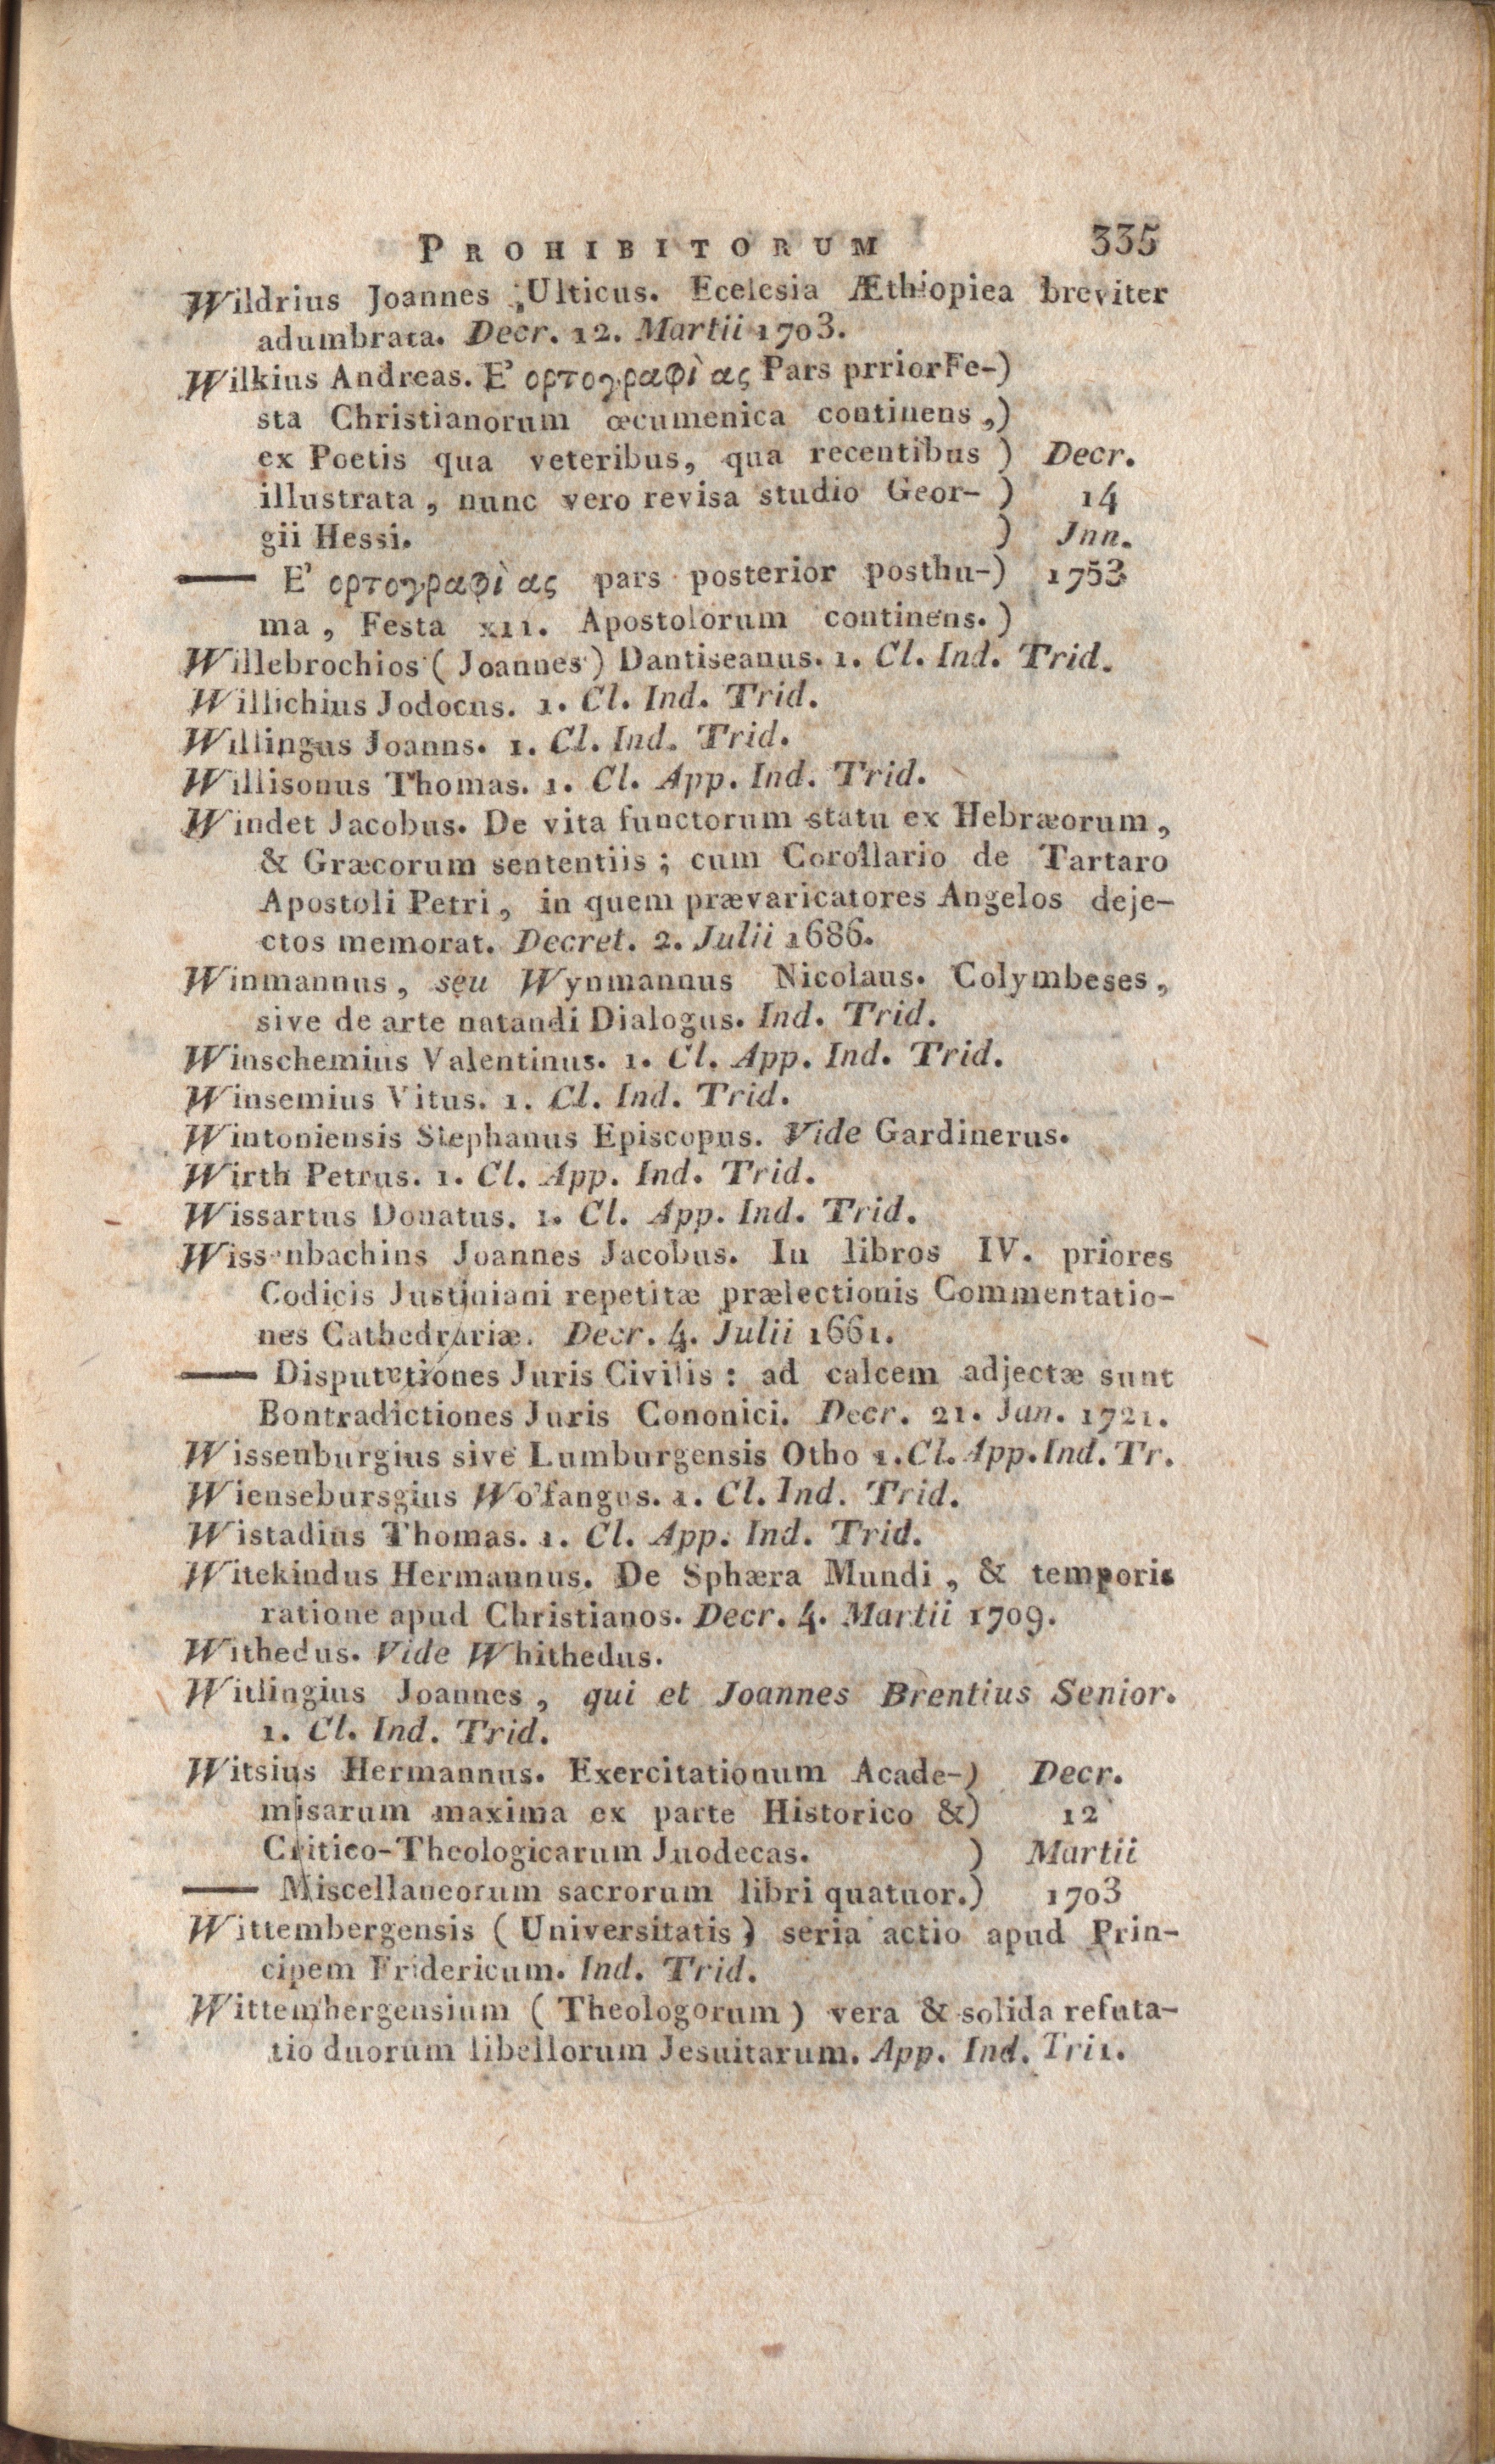 PROHIBITORUM 335
Wildrius Joannes Ulticus. Ecelesia Æthiopiea breviter
adumbrata. Decr. 12. Martii 1703.
Wilkius Andreas. Ε' ορτογραφὶ ας Pars prriorFe-)
sta Christianorum œcumenica continens ,)
ex Poetis qua veteribus, qua recentibus ) Decr.
illustrata , nunc vero revisa studio Geor- ) 14
gii Hessi. ) Jnn.
—— Ε' ορτογραφὶ ας pars posterior posthu-) 1753
ma , Festa XII. Apostolorum continens. )
Willebrochios ( Joannes ) Dantiseanus. 1. Cl. Ind. Trid.
Willichius Jodocus. 1. Cl. Ind. Trid.
Willingus Joanns. 1. Cl. Ind. Trid.
Willisonus Thomas. 1. Cl. App. Ind. Trid.
Windet Jacobus. De vita functorum statu ex Hebræorum ,
& Græcorum sententiis ; cum Corollario de Tartaro
Apostoli Petri , in quem prævaricatores Angelos deje-
ctos memorat. Decret. 2. Julii 1686.
Winmannus , seu Wynmannus Nicolaus. Colymbeses ,
sive de arte natandi Dialogus. Ind. Trid.
Winschemius Valentinus. 1. Cl. App. Ind. Trid.
Winsemius Vitus. 1. Cl. Ind. Trid.
Wintoniensis Stephanus Episcopus. Vide Gardinerus.
Wirth Petrus. 1. Cl. App. Ind. Trid.
Wissartus Donatus. 1. Cl. App. Ind. Trid.
Wissenbachius Joannes Jacobus. In libros IV. priores
Codicis Justiniani repetitæ prælectionis Commentatio-
nes Cathedrariæ. Decr. 4. Julii 1661.
—— Disputetiones Juris Civilis : ad calcem adjectæ sunt
Bontradictiones Juris Cononici. Decr. 21. Jan. 1721.
Wissenburgius sive Lumburgensis Otho 1. Cl. App. Ind. Tr.
Wiensebursgius Wo'fangus. 1. Cl. Ind. Trid.
Wistadius Thomas. 1. Cl. App. Ind. Trid.
Witekindus Hermannus. De Sphæra Mundi , & temporis
ratione apud Christianos. Decr. 4. Martii 1709.
Withedus. Vide Whithedus.
Witlingius Joannes , qui et Joannes Brentius Senior.
1. Cl. Ind. Trid.
Witsius Hermannus. Exercitationum Acade-) Decr.
misarum maxima ex parte Historico &) 12
Critico-Theologicarum Juodecas. ) Martii
—— Miscellaneorum sacrorum libri quatuor.) 1703
Wittembergensis ( Universitatis ) seria actio apud Prin-
cipem Fridericum. Ind. Trid.
Wittemhergensium ( Theologorum ) vera & solida refuta-
tio duorum libellorum Jesuitarum. App. Ind. Tri1.